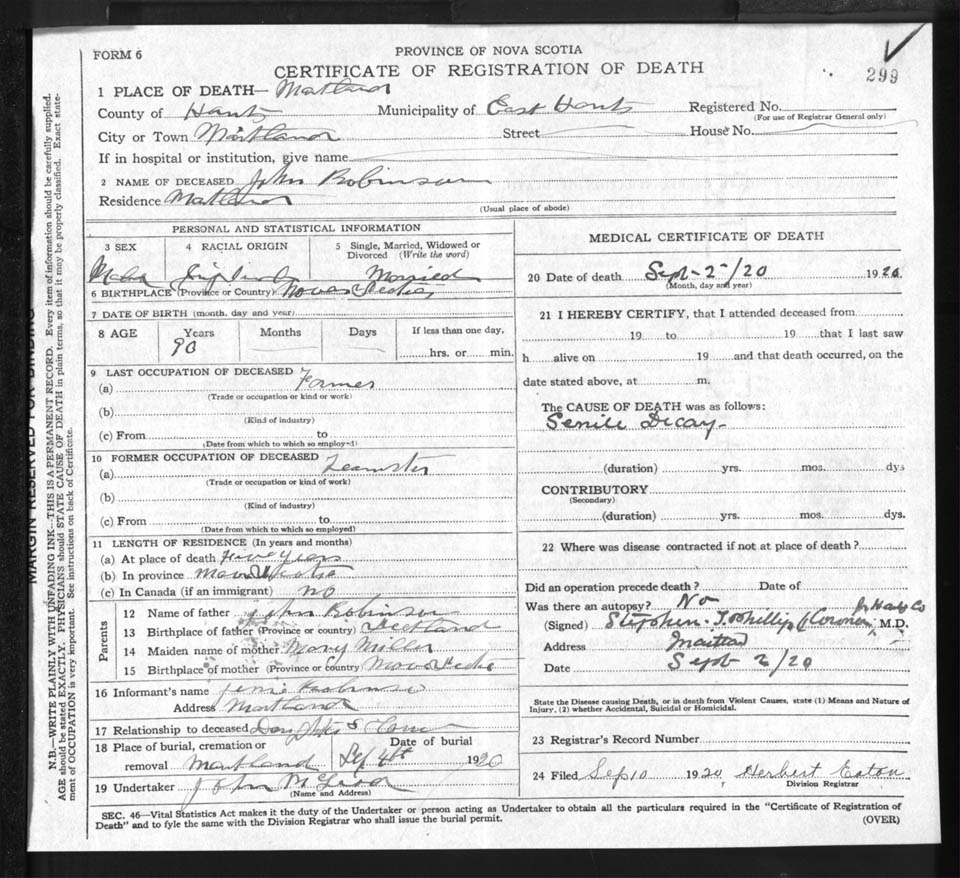 FORM 6
PROVINCE OF NOVA SCOTIA
CERTIFICATE OF REGISTRATION OF DEATH
299
1 PLACE OF DEATH— Maitland
County of Hants Municipality of East Hants Registered No.
(For use of Registrar General only)
City or Town Maitland Street House No.
If in hospital or institution, give name
2 NAME OF DECEASED John Robinson
Residence Maitland
(Usual place of abode)
PERSONAL AND STATISTICAL INFORMATION
3 SEX 4 RACIAL ORIGIN 5 Single, Married, Widowed or Divorced (Write the word)
Male Married
6 BIRTHPLACE (Province or Country) Nova Scotia
7 DATE OF BIRTH (month, day and year)
8 AGE Years Months Days If less than one day,
90 hrs. or min.
9 LAST OCCUPATION OF DECEASED
(a) Farmer
(Trade or occupation or kind or work)
(b)
(Kind of industry)
(c) From to
(Date from which to which so employed)
10 FORMER OCCUPATION OF DECEASED
(a) Teamster
(Trade or occupation or kind of work)
(b)
(Kind of industry)
(c) From to
(Date from which to which so employed)
11 LENGTH OF RESIDENCE (In years and months)
(a) At place of death Years
(b) In province Nova Scotia
(c) In Canada (if an immigrant) NO
Parents
12 Name of father John Robinson
13 Birthplace of father (Province or country) Scotland
14 Maiden name of mother Mary Miller
15 Birthplace of mother (Province or Country) Nova Scotia
16 Informant's name Robinson
Address Maitland
17 Relationship to deceased
18 Place of burial, cremation or removal Maitland Date of burial Sep 4th 1920
19 Undertaker John McLeod
(Name and Address)
MEDICAL CERTIFICATE OF DEATH
20 Date of death Sept-2-/20 1920
(Month, day and year)
21 I HEREBY CERTIFY, that I attended deceased from
19 to 19 that I last saw
h alive on 19 and that death occurred, on the
date stated above, at m.
The CAUSE OF DEATH was as follows:
Senile Decay-
(duration) yrs. mos. dys
CONTRIBUTORY
(Secondary)
(duration) yrs. mos. dys.
22 Where was disease contracted if not at place of death?
Did an operation precede death? Date of
Was there an autopsy? No
(Signed) Stephen Phillips Coroner M.D.
Address Maitland
Date Sept 2/20
State the Disease causing Death, or in death from Violent Causes, state (1) Means and Nature of
Injury, (2) whether Accidental, Suicidal or Homicidal.
23 Registrar's Record Number
24 Filed Sep 10 1920 Herbert Eaton
Division Registrar
SEC. 46—Vital Statistics Act makes it the duty of the Undertaker or person acting as Undertaker to obtain all the particulars required in the "Certificate of Registration of
Death" and to fyle the same with the Division Registrar who shall issue the burial permit.
(OVER)
MARGIN RESERVED FOR BINDING
N.B.—WRITE PLAINLY WITH UNFADING INK—THIS IS A PERMANENT RECORD. Every item of information should be carefully supplied.
AGE should be stated EXACTLY. PHYSICIANS should STATE CAUSE OF DEATH in plain terms, so that it may be properly classified. Exact state-
ment of OCCUPATION is very important. See instructions on back of Certificate.